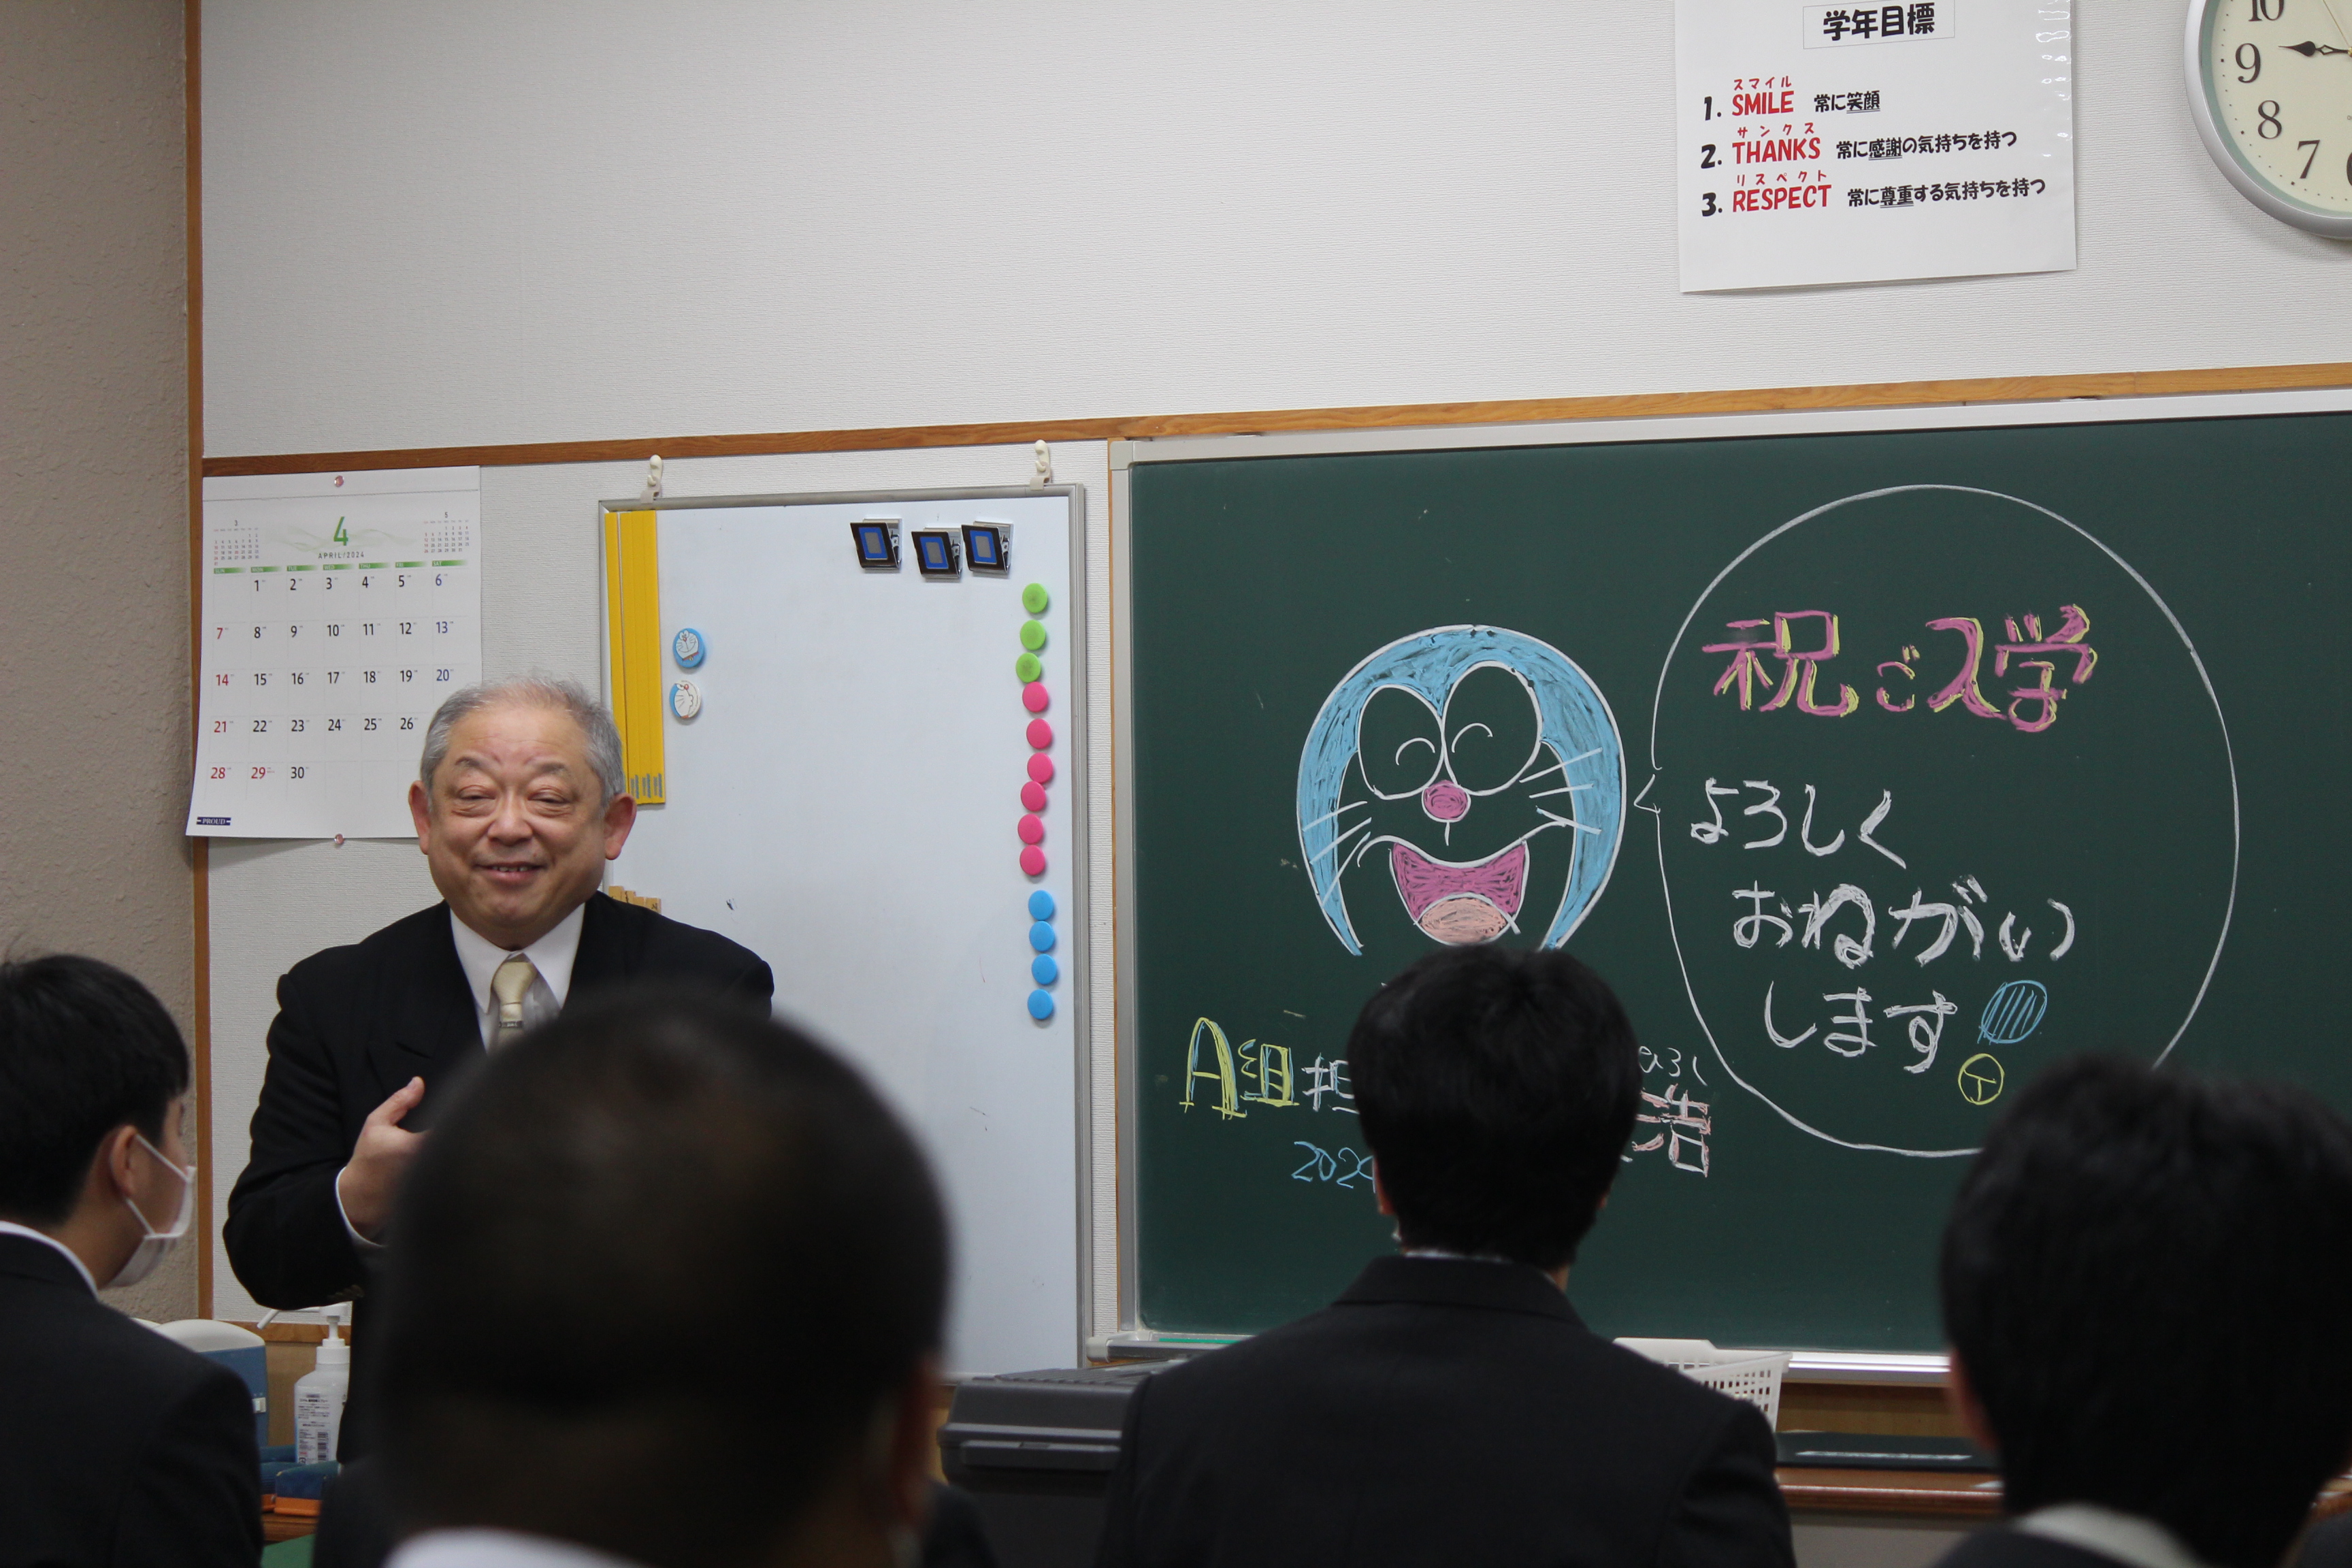 学年目標
スマイル
1. SMILE 常に笑顔
サンクス
2. THANKS 常に感謝の気持ちを持つ
リスペクト
3. RESPECT 常に尊重する気持ちを持つ
10
9
8
7
3
4
5
APRIL/2024
SUN MON TUE WED THU FRI SAT
1 2 3 4 5 6
7 8 9 10 11 12 13
14 15 16 17 18 19 20
21 22 23 24 25 26
28 29 30
PROUD
祝ご入学
よろしく
おねがい
します
A組担
ひろし
浩
202